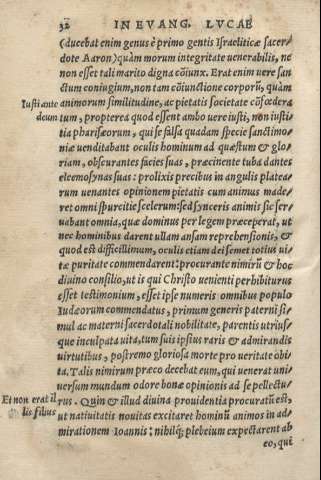 32 IN EVANG. LVCAE
(ducebat enim genus è primo gentis Israeliticæ sacer-
dote Aaron) quàm morum integritate venerabilis, ne
non esset tali marito digna cõiunx. Erat enim uere san
ctum coniugium, non tam cõiunctione corporũ, quàm
Iusti ante
animorum similitudine, ac pietatis societate cõfœdera
deum
tum, propterea quod essent ambo uere iusti, non iusti-
tia pharisæorum, qui se falsa quadam specie sanctimo-
niæ uenditabant oculis hominum ad quæstum & glo-
riam, obscurantes facies suas, præcinente tuba dantes
eleemosynas suas: prolixis precibus in angulis platea-
rum uenantes opinionem pietatis cum animus made-
ret omni spurcitie scelerum: sed synceris animis sic ser-
uabant omnia, quæ dominus per legem præceperat, ut
nec hominibus darent ullam ansam reprehensionis, &
quod est difficillimum, oculis etiam dei semet totius ui-
tæ puritate commendarent: procurante nimirũ & hoc
diuino consilio, ut is qui Christo uenienti perhibiturus
esset testimonium, esset ipse numeris omnibus populo
Iudæorum commendatus, primum generis paterni si-
mul ac materni sacerdotali nobilitate, parentis utrius-
que inculpata uita, tum suis ipsius raris & admirandis
uirtutibus, postremo gloriosa morte pro ueritate obi-
ta. Talis nimirum præco decebat eum, qui uenerat uni-
uersum mundum odore bonæ opinionis ad se pellectu-
Et non erat il
rus. Quin & illud diuina prouidentia procuratũ est,
lis filius
ut natiuitatis nouitas excitaret hominũ animos in ad-
mirationem Ioannis: nihilq; plebeium expectarent ab
eo, qui